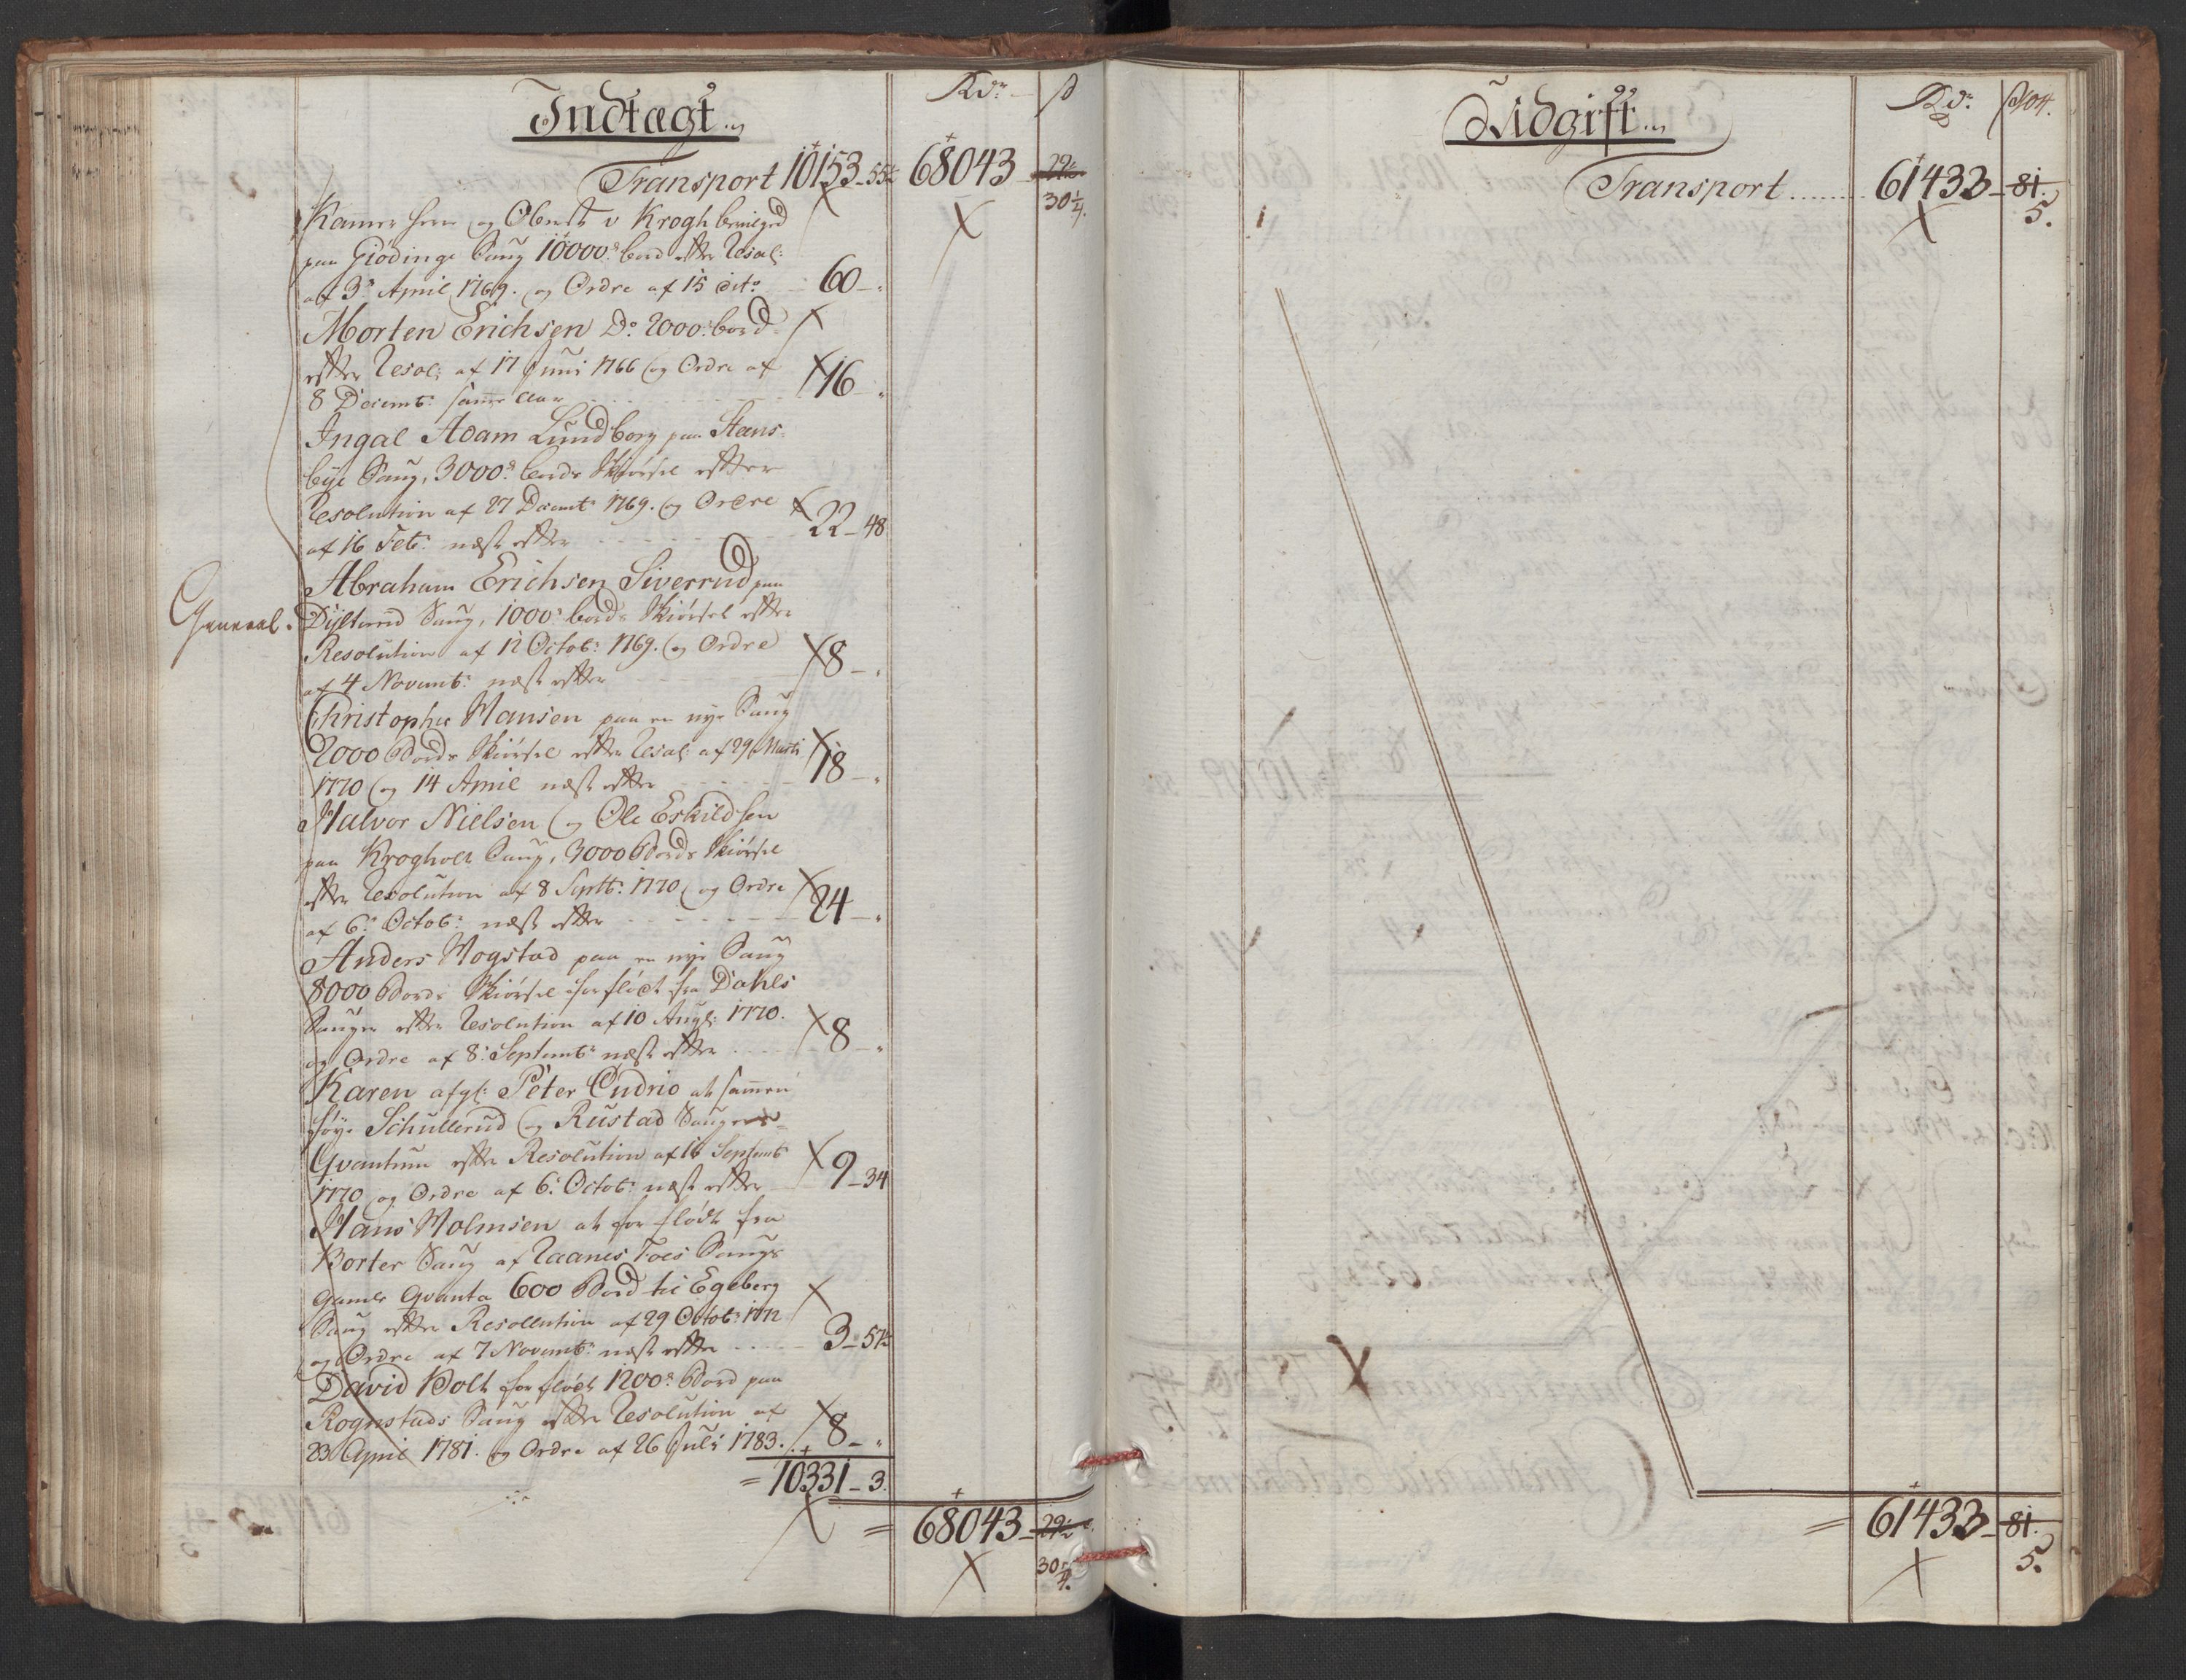 Indtægt
Rdr ß
Transport 10153-55½ 68043 29½
30¼.
Kamerherre og Obrist v Krogh bevilged
paa Giödinge Saug 10000 bord efter Resol:
af 3 April 1769. og Ordre af 15 dito 60-„
Morten Erichsen Do 2000 bord
efter Resol: af 17 Juni 1766 og Ordre af
8 Decembr: samme Aar 16-„
Adam Lundborg paa Stens-
bye Saug, 3000 bords Kiörsel efter
Resolution af 27 Decembr 1769. og Ordre
af 16 Febr: næst efter 22-48
Abraham Erichsen Siverrud paa
Saug, 1000 bords Kiörsel efter
Resolution af 12 Octobr: 1769. og Ordre
af 4 Novembr: næst efter 8-„
General.
Christopher Hansen paa en nye Saug
2000 Bords Kiörsel efter Resol: af 29 Marti
1770 og 14 April næst efter 18-„
Halvor Nielsen og Ole Eskildsen
paa Krogholt Saug, 3000 Bords Kiörsel
efter Resolution af 8 Septbr: 1770 og Ordre
af 6 Octobr: næst efter 24-„
Anders Hogstad paa en nye Saug
8000 Bords Kiörsel forflödt fra Dahls
Sauger efter Resolution af 10 Aug: 1770.
og Ordre af 8 Septembr næst efter 8-„
Karen afgl: Peter Cudrio at sammen
föye Schullerud og Rustad Saugers
Qvantum efter Resolution af 16 Septembr
1770 og Ordre af 6 Octobr: næst efter 9-34
Hans Holmsen at forflödt fra
Borter Saug af Raanes Foes Saugs
gamle Qvanta 600 Bord til Egeberg
Saug efter Resollution af 29 Octobr: 1772
og Ordre af 7 Novembr: næst efter 3-57½
David Bolt forflödt 1200 Bord paa
Rognstads Saug efter Resolution af
23 April 1781. og Ordre af 26 Juli 1783. 8-„
= 10331-3.
= 68043-29½
30¼.
Udgift
Rdr. ß 104.
Transport 61433-81.
5.
= 61433-81.
5.